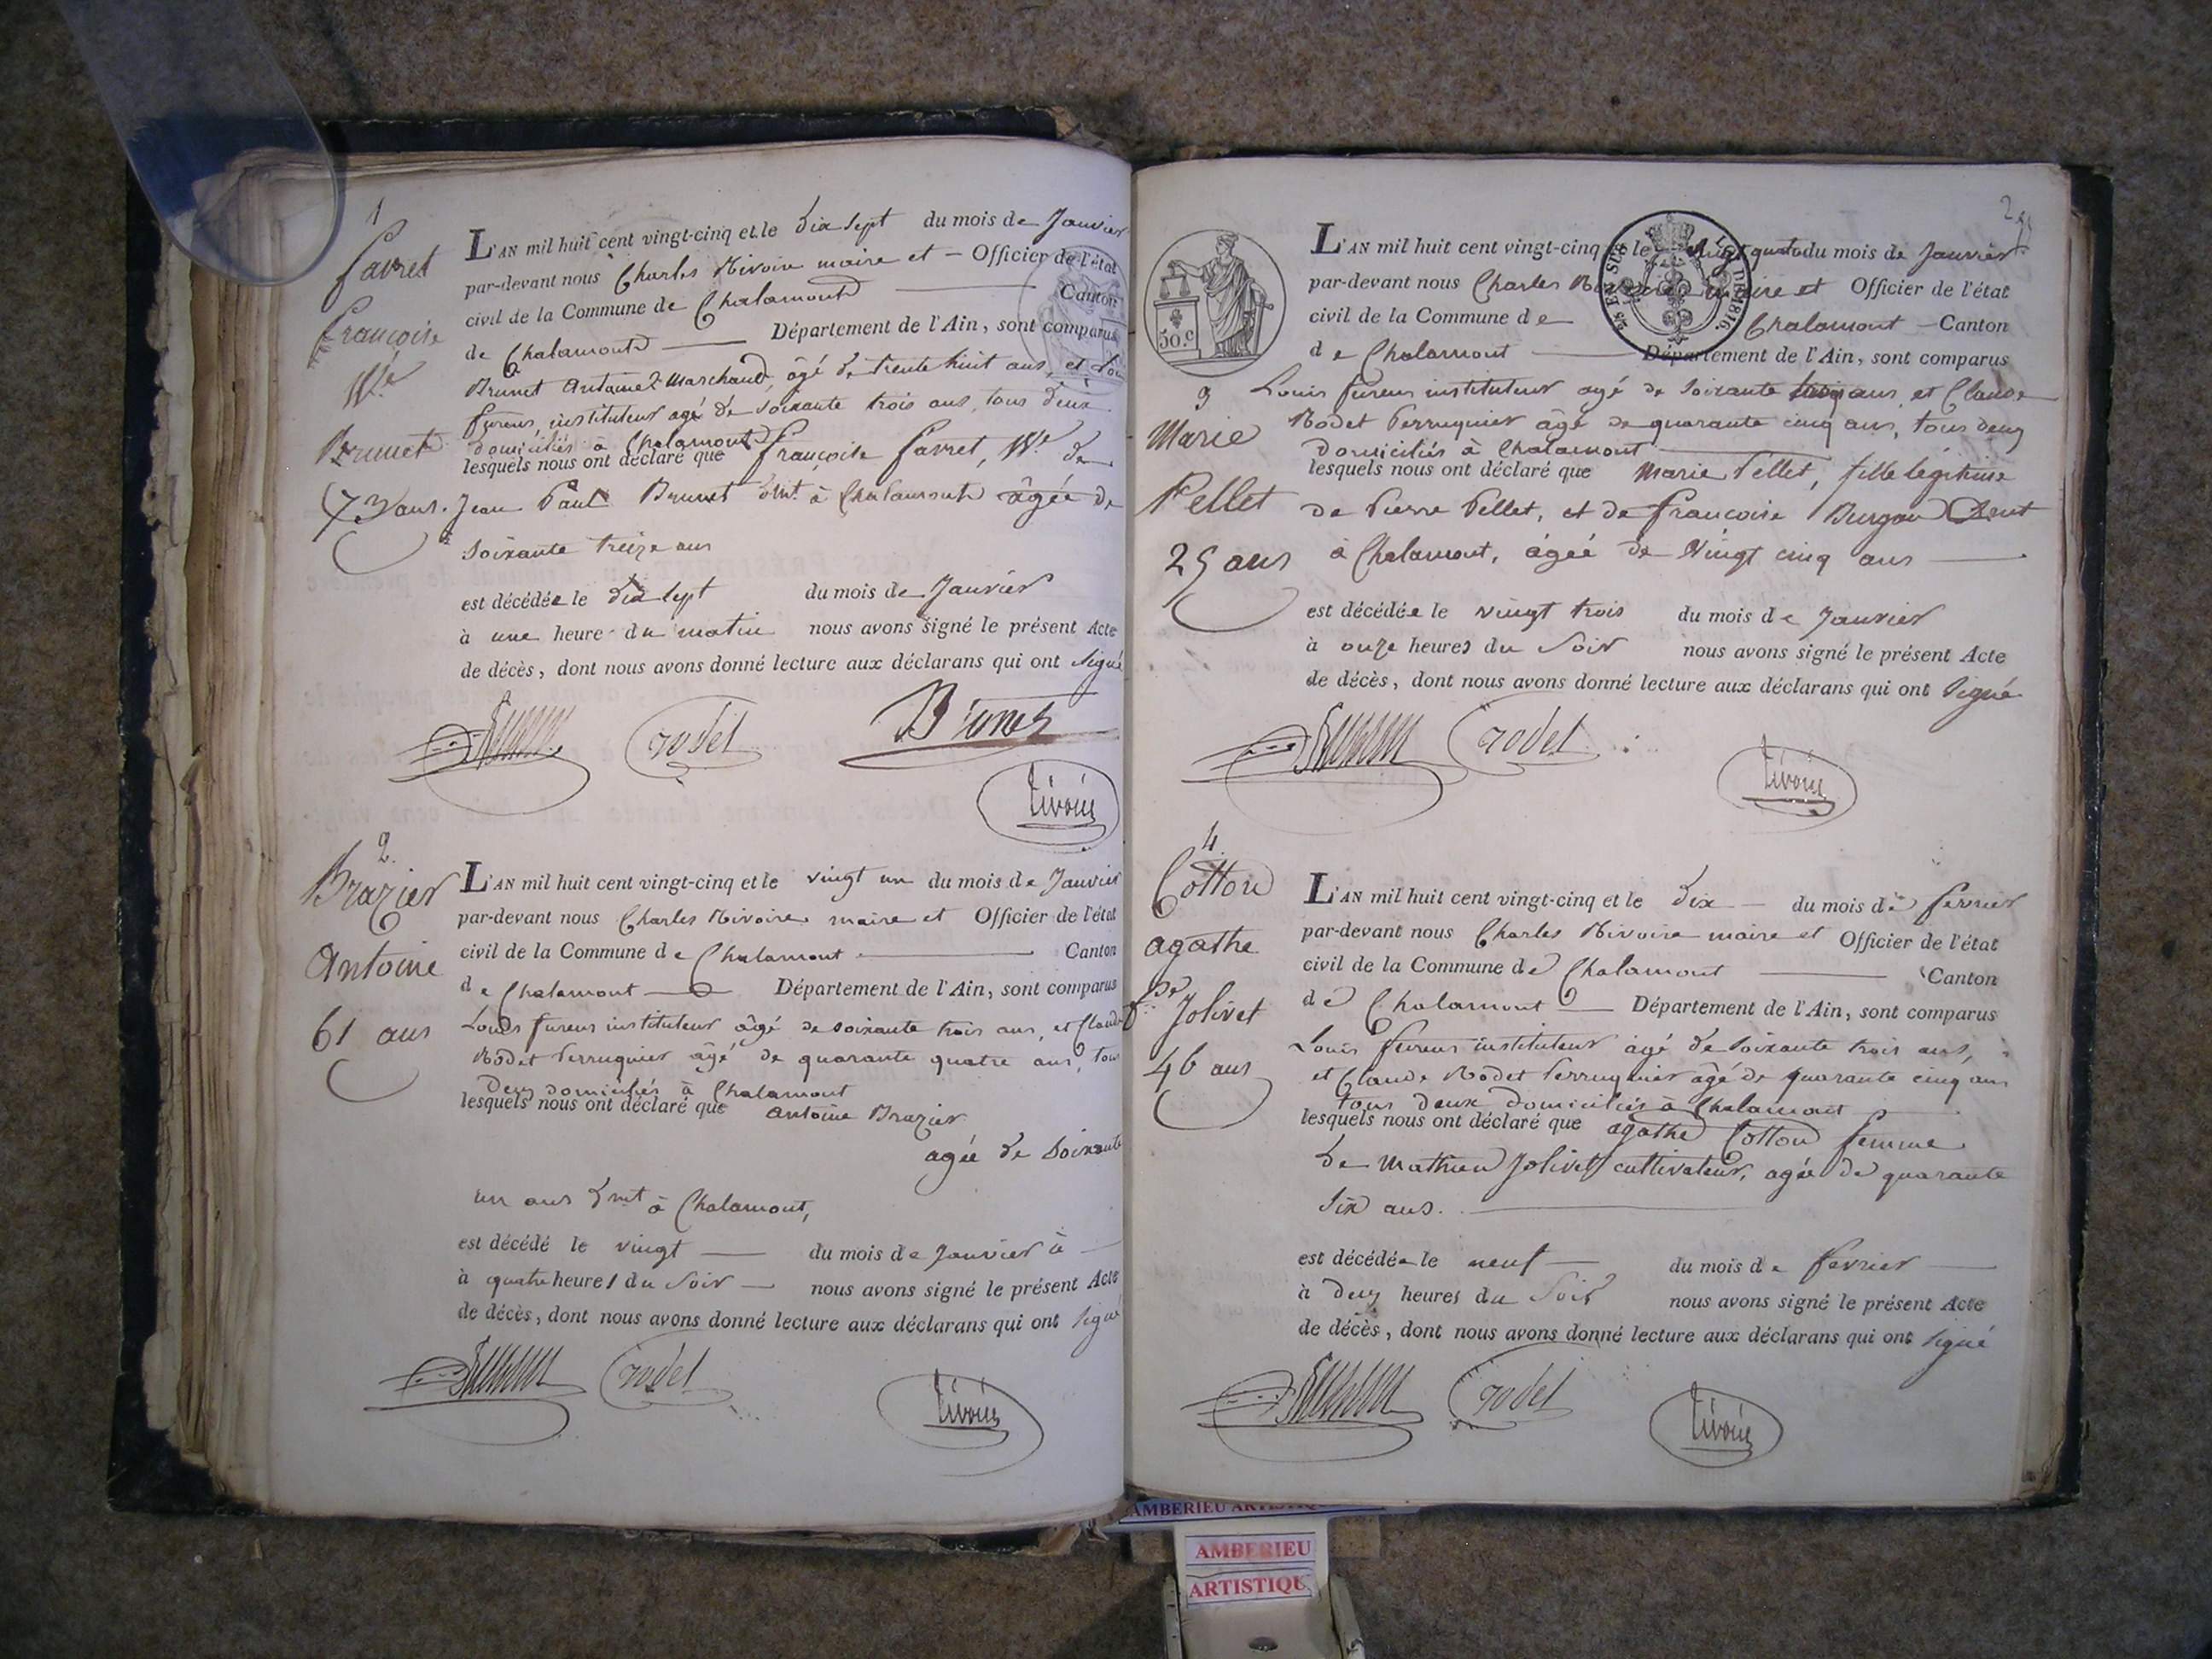 1
favret
françoise
Ve
Brunet
73 ans.
L'AN mil huit cent vingt-cinq et le dix sept du mois de Janvier
par-devant nous Charles Rivoire maire et – Officier de l'état
civil de la Commune de Chalamont Canton
de Chalamont Département de l'Ain, sont comparus
Brunet Antoine Marchand, âgé de trente huit ans, et Louis
fureus, instituteur agé de soixante trois ans, tous deux
domiciliés à Chalamont
lesquels nous ont déclaré que françoise favret, Ve de
Jean Paul Brunet à Chalamont âgée de
soixante treize ans
est décédée le dix sept du mois de Janvier
à une heure du matin nous avons signé le présent Acte
de décès, dont nous avons donné lecture aux déclarans qui ont signé
rodet
Brunet
Rivoire
2.
Brazier
Antoine
61 ans
L'AN mil huit cent vingt-cinq et le vingt un du mois de Janvier
par-devant nous Charles Rivoire maire et Officier de l'état
civil de la Commune de Chalamont Canton
de Chalamont Département de l'Ain, sont comparus
Louis fureus instituteur âgé de soixante trois ans, et Claude
Rodet Perruquier âgé de quarante quatre ans, tous
deux domiciliés à Chalamont
lesquels nous ont déclaré que antoine Brazier
agée de soixante
un ans dmt à Chalamont,
est décédé le vingt du mois de Janvier à
à quatre heures du soir nous avons signé le présent Acte
de décès, dont nous avons donné lecture aux déclarans qui ont signé
rodet
Rivoire
2
50.c
3
Marie
Pellet
25 ans
L'AN mil huit cent vingt-cinq et le vingt quatre du mois de Janvier
par-devant nous Charles Rivoire maire et Officier de l'état
civil de la Commune de Chalamont Canton
de Chalamont Département de l'Ain, sont comparus
Louis fureus instituteur agé de soixante trois ans et Claude
Rodet Perruquier âgé de quarante cinq ans, tous deux
domiciliés à Chalamont
lesquels nous ont déclaré que Marie Pellet, fille légitime
de Pierre Pellet, et de françoise
à Chalamont, âgée de vingt cinq ans
est décédée le vingt trois du mois de Janvier
à onze heures du soir nous avons signé le présent Acte
de décès, dont nous avons donné lecture aux déclarans qui ont signé
rodet
Rivoire
4.
Cotton
agathe
fe Jolivet
46 ans
L'AN mil huit cent vingt-cinq et le dix du mois de fevrier
par-devant nous Charles Rivoire maire et Officier de l'état
civil de la Commune de Chalamont Canton
de Chalamont Département de l'Ain, sont comparus
Louis fureus instituteur âgé de soixante trois ans,
et Claude Rodet Perruquier âgé de quarante cinq ans
tous deux domiciliés à Chalamont
lesquels nous ont déclaré que agathe Cotton femme
de Mathieu Jolivet cultivateur, agée de quarante
six ans.
est décédée le neuf du mois de fevrier
à deux heures du soir nous avons signé le présent Acte
de décès, dont nous avons donné lecture aux déclarans qui ont signé
rodet
Rivoire
AMBERIEU
AMBERIEU
ARTISTIQU